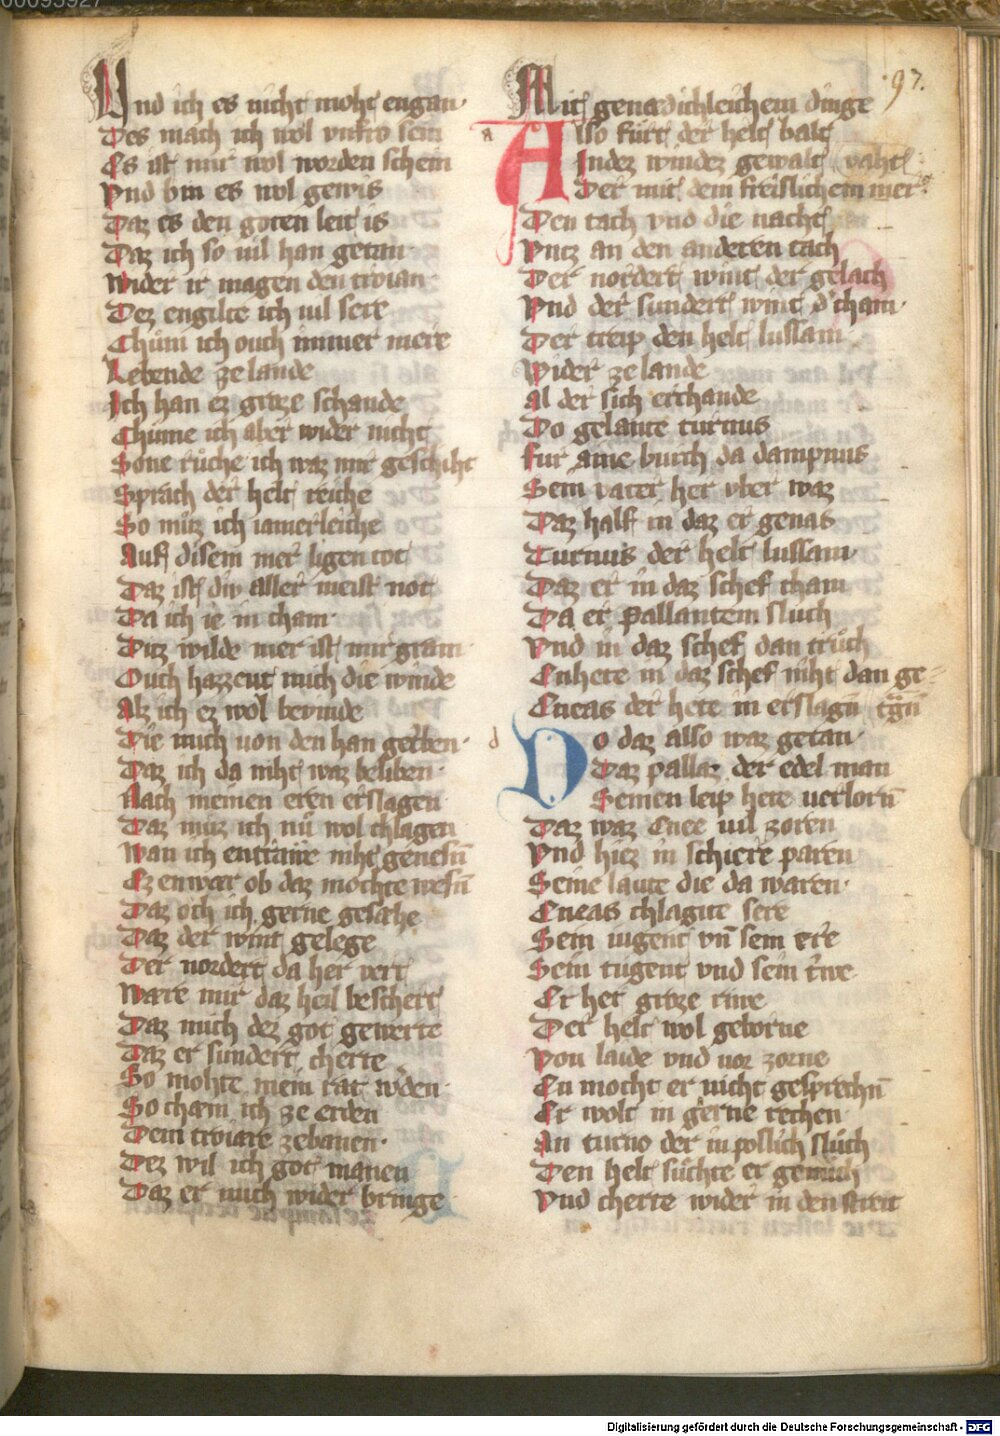 00095927
97.
Vnd ich es nicht moht engan
Des mach ich wol vnfro sein
Es ist mir wol worden schein
Vnd bin es wol gewis
Daz es den goten leit is
Daz ich so uil han getan
Wider ir magen den troian
Dez engilte ich uil sere
Chům ich ouch immer mere
Lebende ze lande
Ich han ez groze schande
Chůme ich aber wider nicht
Sone růche ich waz mir geschiht
Sprach der helt reiche
So můz ich iamerleiche
Auf disem mer ligen tot
Daz ist div aller meist not
Da ich ie in cham
Ditz wilde mer ist mir gram
Ouch hazzent mich die winde
Alz ich ez wol bevinde
Die mich uon den han getriben
Daz ich da niht waz beliben
Nach meinen eren erslagen
Daz můz ich nů wol chlagen
Wan ich entrawe niht genesn̄
Ez enwær ob daz mochte wesn̄
Daz och ich gerne gesæhe
Daz der wint gelege
Der nordert da her vert
Wære mir daz heil beschert
Daz mich dez got gewerte
Daz er sundert cherte
So mohte mein rat wˀden
So cham ich ze erden
Dem troiare zebanen
Dez wil ich got manen
Daz er mich wider bringe
Mit genædichleichem dinge
a
Also fůrt der helt balt
In dez windez gewalt
vaht
Der mit dem freislichem mer
Den tach vnd die nacht
Vntz an den anderen tach
Der nordert wint der gelach
Vnd der sundert wint dˀ cham
Der treip den helt lussam
Wider ze lande
Al der sich erchande
Do gelante turnus
Fur aine burch da dampnus
Sein vater her vber waz
Daz half in daz er genas
Turnus der helt lussam
Daz er in daz schef cham
Da er pallantem slůch
Vnd in daz schef dan trůch
Enhete in daz schef niht dan ge-
Eneas der hete in erslagn̄ tgn̄
d
Do daz also waz getan
Daz pallaz der edel man
Seinen leip hete uerlorn̄
Daz waz Enee uil zoren
Vnd hiez in schiere paren
Seine laute die da waren
Eneas chlagite sere
Sein iugent vn̄ sein ere
Sein tugent vnd sein trwe
Er het groze riwe
Der helt wol geborne
Von laide vnd uor zorne
En mocht er nicht gesprechn̄
Er wolt in gerne rechen
An turno der in poslich slůch
Den helt sůchte er genůch
Vnd cherte wider in den streit
Digitalisierung gefördert durch die Deutsche Forschungsgemeinschaft - DFG